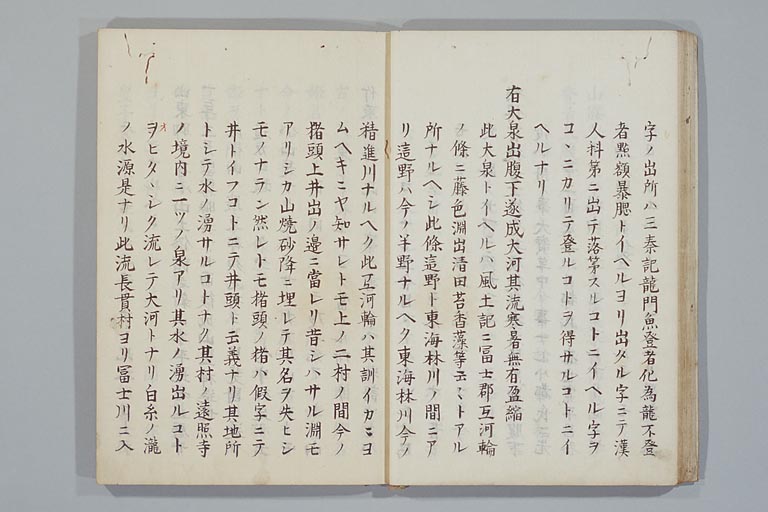 字ノ出所ハ三秦記龍門魚登者化為龍不登
者點額暴腮トイヘルヨリ出タル字ニテ漢
人科第ニ出テ落第スルコトニイヘル字ヲ
コヽニカリテ登ルコトヲ得サルコトニイ
ヘルナリ
右大泉出腹下遂成大河其流寒暑無有盈縮
此大泉トイヘルハ風土記ニ冨士郡互河輪
ノ條ニ藤色淵出清田苔香藻等云ミトアル
所ナルヘシ此條這野ト東海林川ノ間ニア
リ這野ハ今ノ羊野ナルヘク東海林川今ノ
精進川ナルヘク此互河輪ハ其訓イカニヨ
ムヘキニヤ知サレトモ上ノ二村ノ間今ノ
楮頭上井出ノ邊ニ當レリ昔シハサル淵モ
アリシカ山燒砂降ニ埋レテ其名ヲ失ヒシ
モノナラン然レトモ楮頭ノ楮ハ假字ニテ
井トイフコトニテ井頭ト云義ナリ其地所
トシテ水ノ湧サルコトナク其村ノ遠照寺
ノ境内ニ一ツノ泉アリ其水ノ湧出ルコト
ヲヒタヽシク流レテ大河トナリ白糸ノ瀧
オ
ノ水源是ナリ此流長貫村ヨリ冨士川ニ入